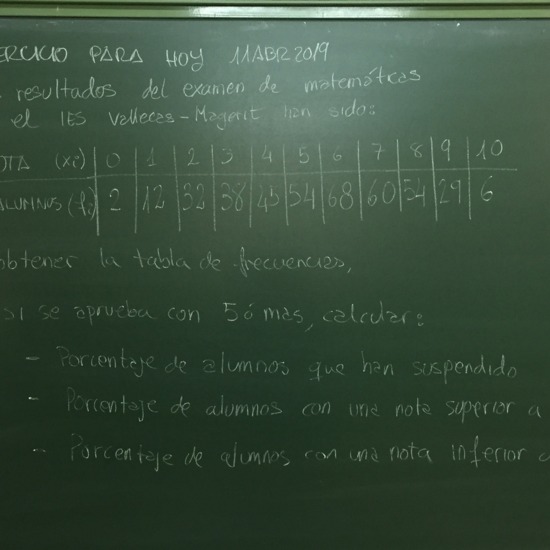 ERCICIO PARA HOY 11ABR2019
resultados del examen de matemáticas
el IES Vallecas-Magerit han sido:
OTA (xi) 0 1 2 3 4 5 6 7 8 9 10
ALUMNOS (fi) 2 12 32 38 45 54 68 60 54 29 6
obtener la tabla de frecuencias,
si se aprueba con 5 ó mas, calcular:
- Porcentaje de alumnos que han suspendido
- Porcentaje de alumnos con una nota superior a
- Porcentaje de alumnos con una nota inferior a